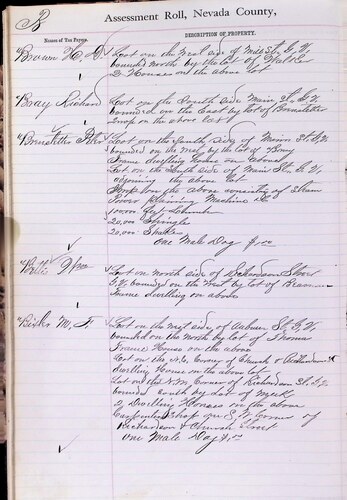 B
Assessment Roll, Nevada County,
Names of Tax Payers.
DESCRIPTION OF PROPERTY.
Brown H. Lot on the West side of Mill St. G.V.
bounded North by the lot of
2 Houses on the above lot
Bray Richard Lot on the South side Main St. G.V.
bounded on the East by lot of Bornstetter
Shop on the above lot
Bornstetter Lot on the South side of Main St. G.V.
bounded on the West by the lot of Bray
Frame dwelling House on above
Lot on the South side of Main St. G.V.
adjoining the above
Shop on the above consisting of Steam
Power planing Machine &c
10000 feet Lumber
20,000 Shingles
20,000 Shakes
One Male Dog $1.00
Betts Wm Lot on North side of Richardson Street
G.V. bounded on the West by lot of
Frame dwelling on above
M. F. Lot on the West side of Auburn St. G.V.
bounded on the North by lot of Thomas
Frame House on the above
Lot on the N.E. Corner of Church & Richardson St
dwelling House on the above lot
Lot on the N.W. Corner of Richardson St. G.V.
bounded South by lot of Meek
2 Dwelling Houses on the above
Carpenter Shop on S.W. Corner of
Richardson & Church Street
One Male Dog $1.00